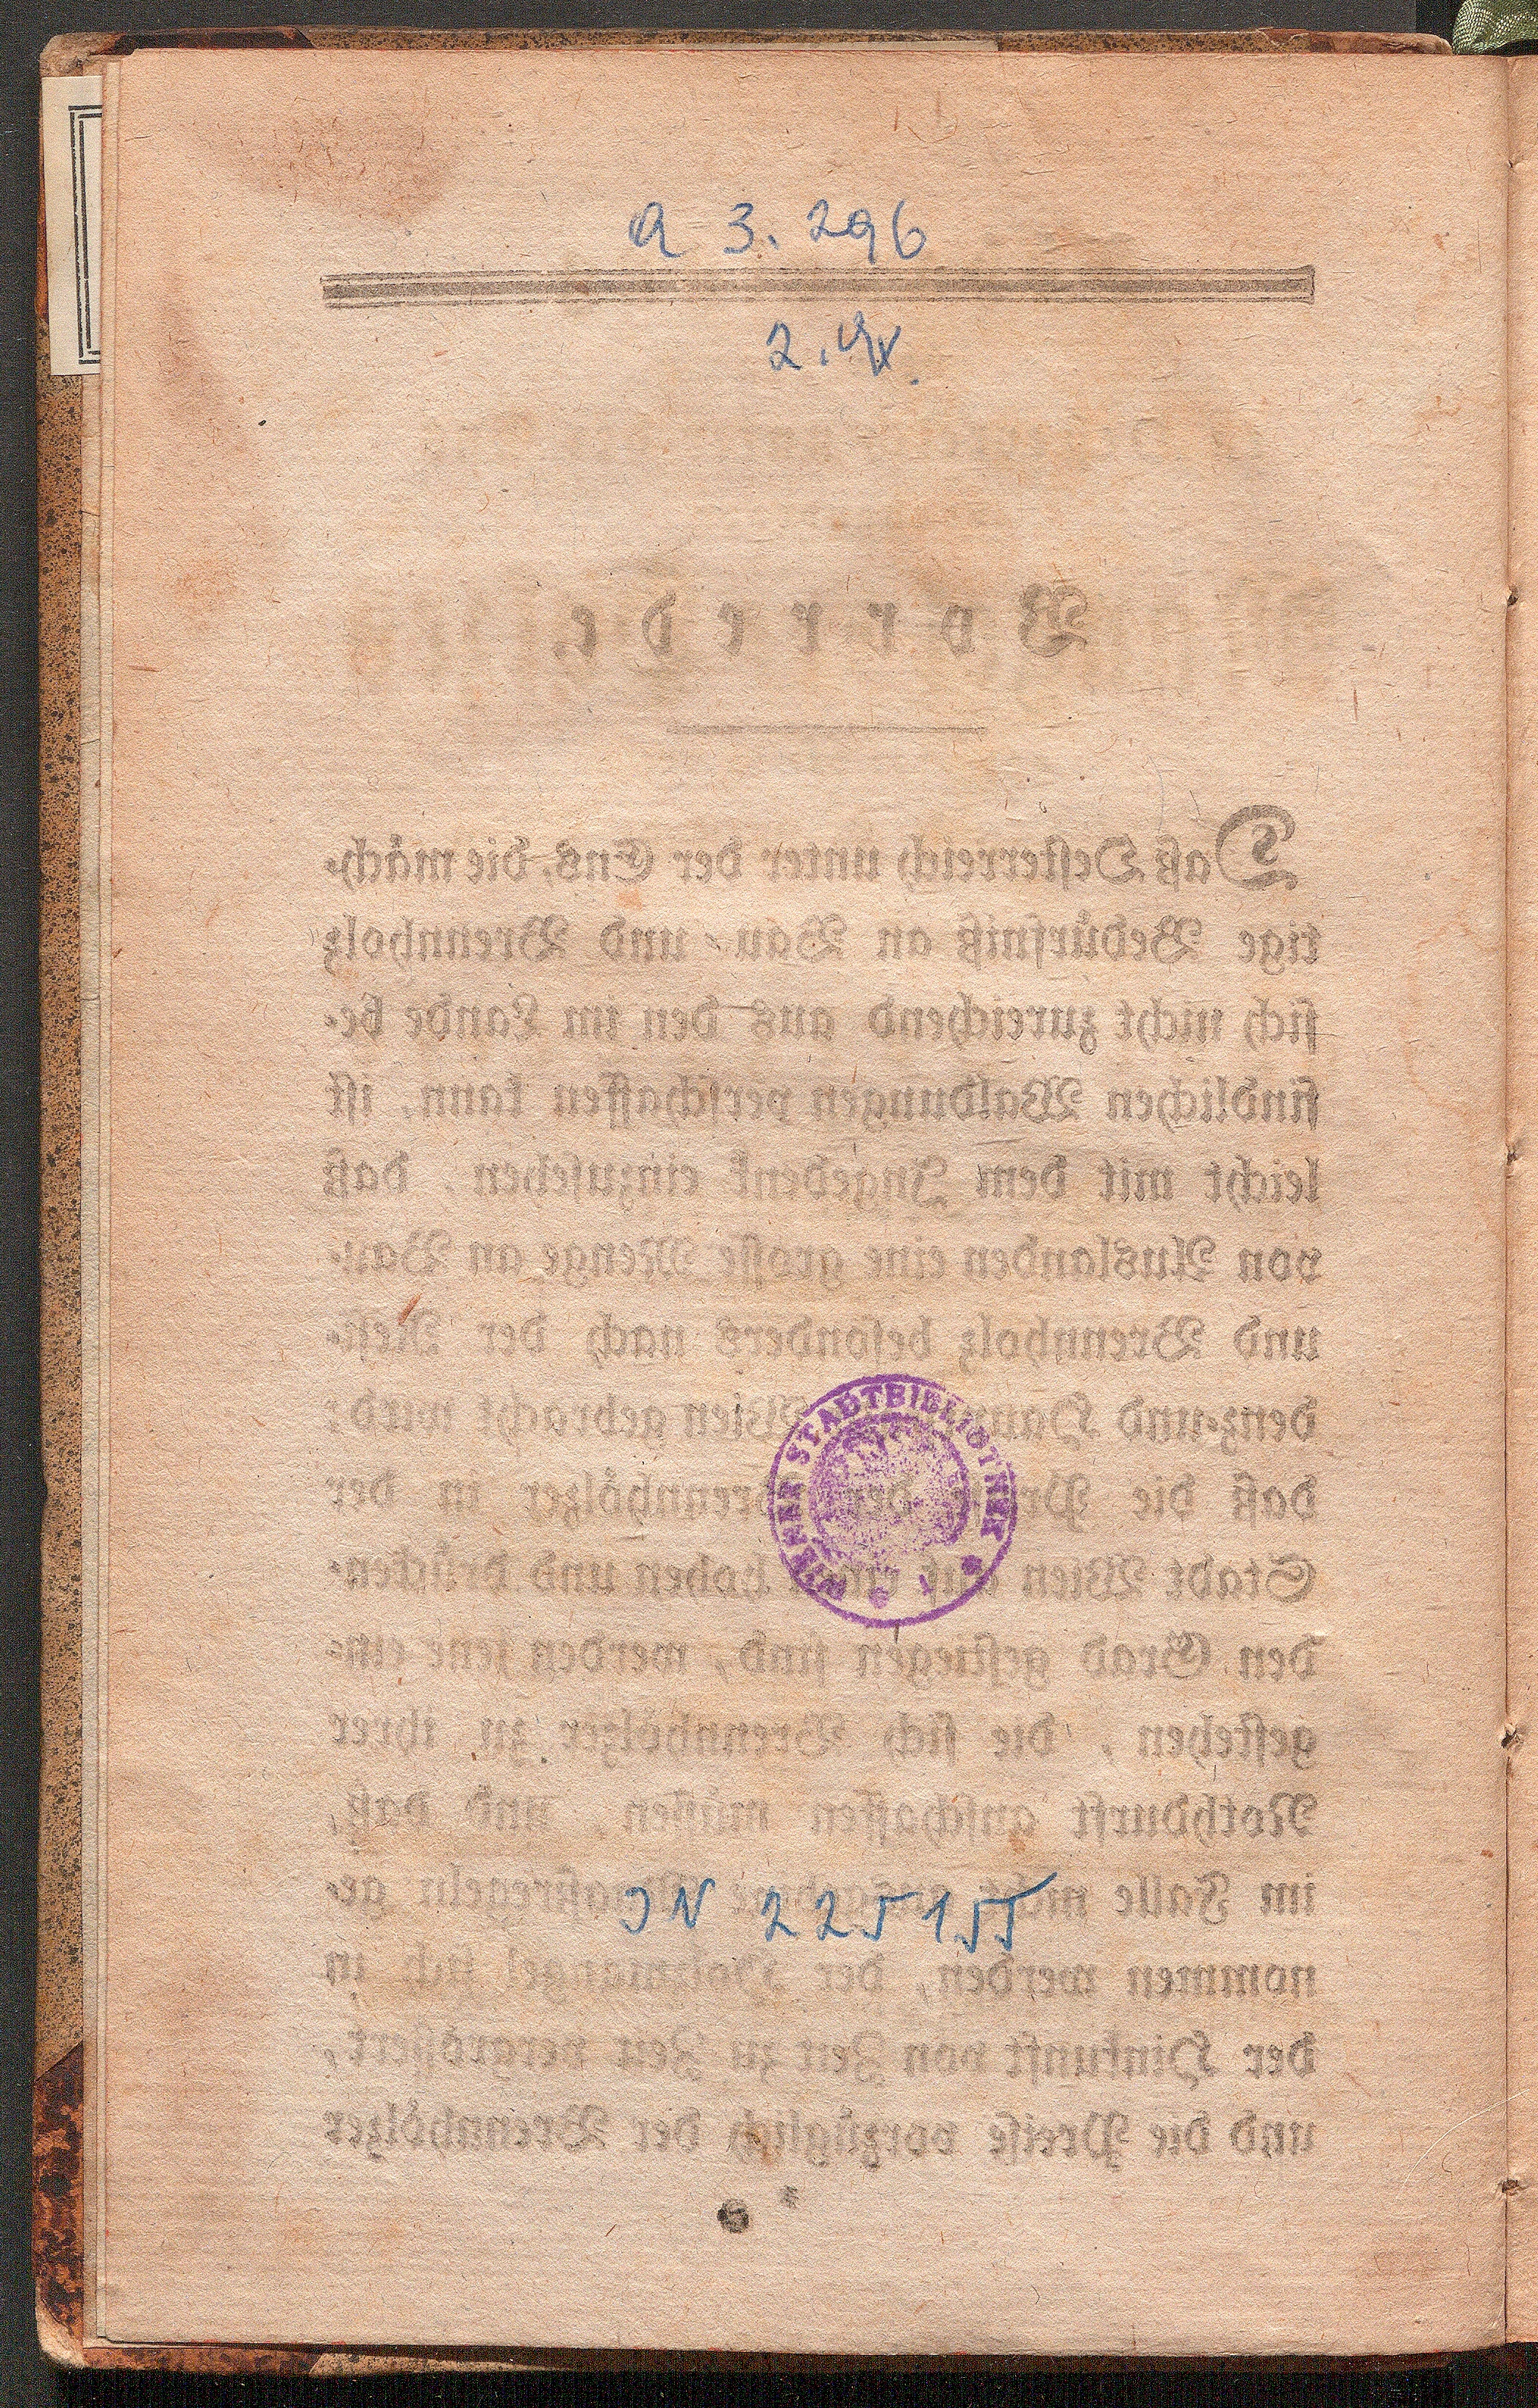 A 3.296
2. Ex.
Vorrede.
Daß Oesterreich unter der Ens, die mäch-
tige Bedürfniß an Bau- und Brennholz
sich nicht zureichend aus den im Lande be-
findlichen Waldungen verschaffen kann, ist
leicht mit dem Ingedenk einzusehen, daß
von Auslanden eine grosse Menge an Bau-
und Brennholz besonders nach der Resi-
denz- und Wien gebracht wird;
daß die der Brennhölzer in der
Stadt Wien auf einen hohen und drücken-
den Grad gestiegen sind, werden jene ein-
gestehen, die sich Brennhölzer zu ihrer
Nothdurft anschaffen müssen, und daß,
im Falle nicht Maaßregeln ge-
nommen werden, der Holzmangel sich in
der Hinkunft von Zeit zu Zeit vergrössert,
und die Preise vorzüglich der Brennhölzer
WIENER STADTBIBLIOTHEK
IN 225155